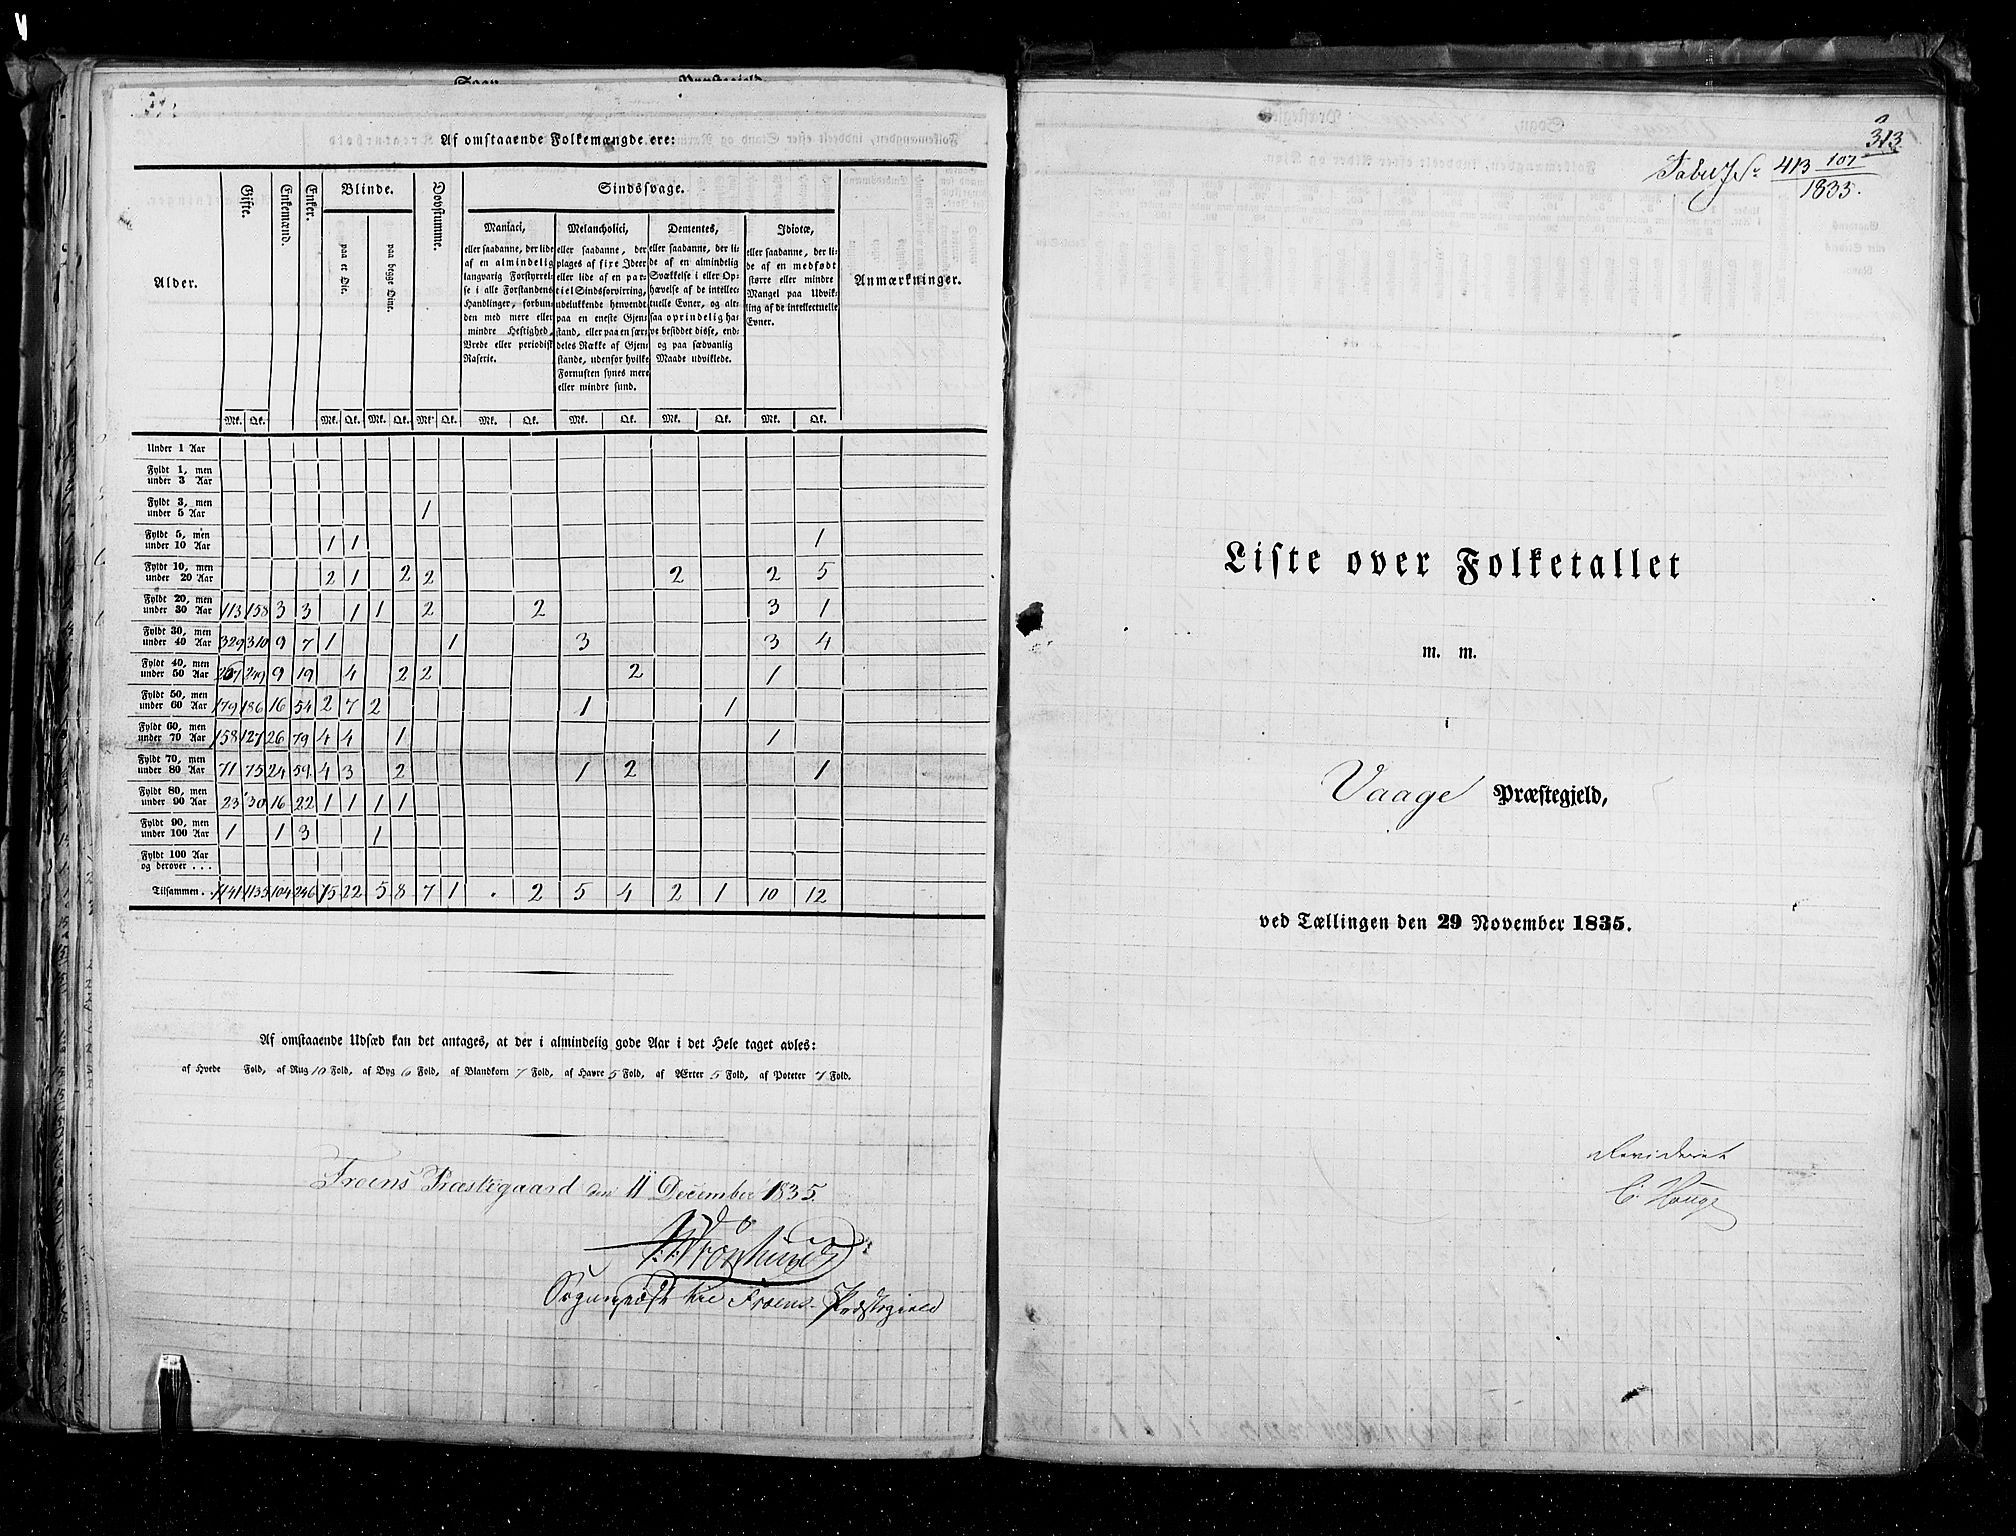 Af omstaaende Folkemængde ere:
Alder. Gifte. Enkemænd. Enker. Blinde. Døvstumme. Sindssvage. Anmærkninger.
paa et Øie. paa begge Øine.
Maniaci,
eller saadanne, der lide
af en almindelig
langvarig Forstyrrel-
se i alle Forstandens
Handlinger, forbun-
den med mere eller
mindre Heftighed,
Vrede eller periodisk
Raserie.
Melancholici,
eller saadanne, der
plages af fixe Ideer
eller lide af en par-
tiel Sindsforvirring,
udelukkende henvendt
paa en eneste Gjen-
stand, eller paa en sær-
deles Række af Gjen-
stande, udenfor hvilke
Fornuften synes mere
eller mindre sund.
Dementes,
eller saadanne, der li-
de af en almindelig
Svækkelse i eller Op-
hævelse af de intellec-
tuelle Evner, og alt-
saa oprindelig ha-
ve besiddet disse, end-
og paa sædvanlig
Maade udviklede.
Idiotæ,
eller saadanne, der li-
de af en medfødt
større eller mindre
Mangel paa Udvik-
ling af de intellectuelle
Evner.
Mk. Qk. Mk. Qk. Mk. Qk. Mk. Qk. Mk. Qk. Mk. Qk. Mk. Qk. Mk. Qk.
Under 1 Aar
Fyldt 1, men
under 3 Aar
Fyldt 3, men
under 5 Aar 1
Fyldt 5, men
under 10 Aar 1 1 1
Fyldt 10, men
under 20 Aar 2 1 2 2 2 2 5
Fyldt 20, men
under 30 Aar 113 158 3 3 1 1 2 2 3 1
Fyldt 30, men
under 40 Aar 329 310 9 7 1 1 3 3 4
Fyldt 40, men
under 50 Aar 267 249 9 19 4 2 2 2 1
Fyldt 50, men
under 60 Aar 179 186 16 54 2 7 2 1 1
Fyldt 60, men
under 70 Aar 158 127 26 79 4 4 1 1
Fyldt 70, men
under 80 Aar 71 75 24 59 4 3 2 1 2 1
Fyldt 80, men
under 90 Aar 23 30 16 22 1 1 1 1
Fyldt 90, men
under 100 Aar 1 1 3 1
Fyldt 100 Aar
og derover . . .
Tilsammen . . 1141 1135 104 246 15 22 5 8 7 1 . 2 5 4 2 1 10 12
Af omstaaende Udsæd kan det antages, at der i almindelig gode Aar i det Hele taget avles:
af Hvede Fold, af Rug 10 Fold, af Byg 6 Fold, af Blandkorn 7 Fold, af Havre 5 Fold, af Ærter 5 Fold, af Poteter 7 Fold.
Froens Præstegaard den 11 December 1835.
Sognepræst til Froens Præstegield
313
Tab: 413 107/1835.
Liste over Folketallet
m. m.
i
Vaage Præstegjeld,
ved Tællingen den 29 November 1835.
Revideret
C. Hauge